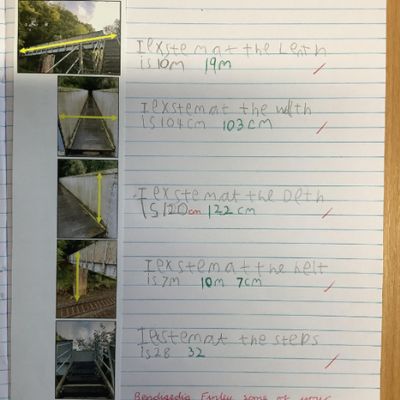 I exstemat the Lenth
is 10m 19m
I exstemat the width
is 104cm 103cm
I exstemat the Deth
Is 120cm 122cm
I exstemat the heit
is 7m 10m 7cm
I estemat the steps
is 28 32
Bendigedig Finley some of your